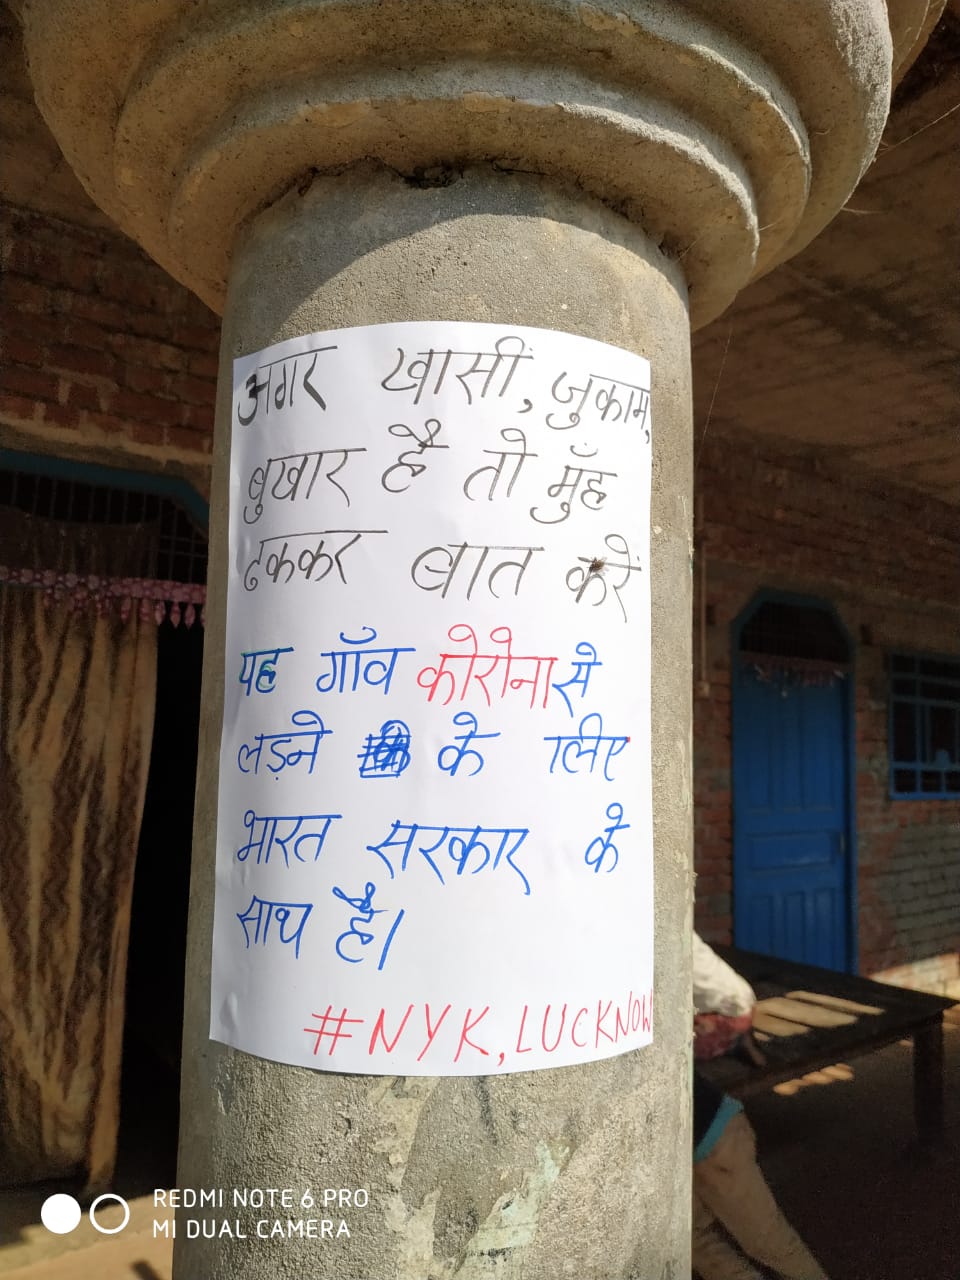 अगर खासीं, जुकाम,
बुखार है तो मुँह
ढककर बात करें
यह गाँव कोरोना से
लड़ने के लिए
भारत सरकार के
साथ है।
#NYK, LUCKNOW
REDMI NOTE 6 PRO
MI DUAL CAMERA